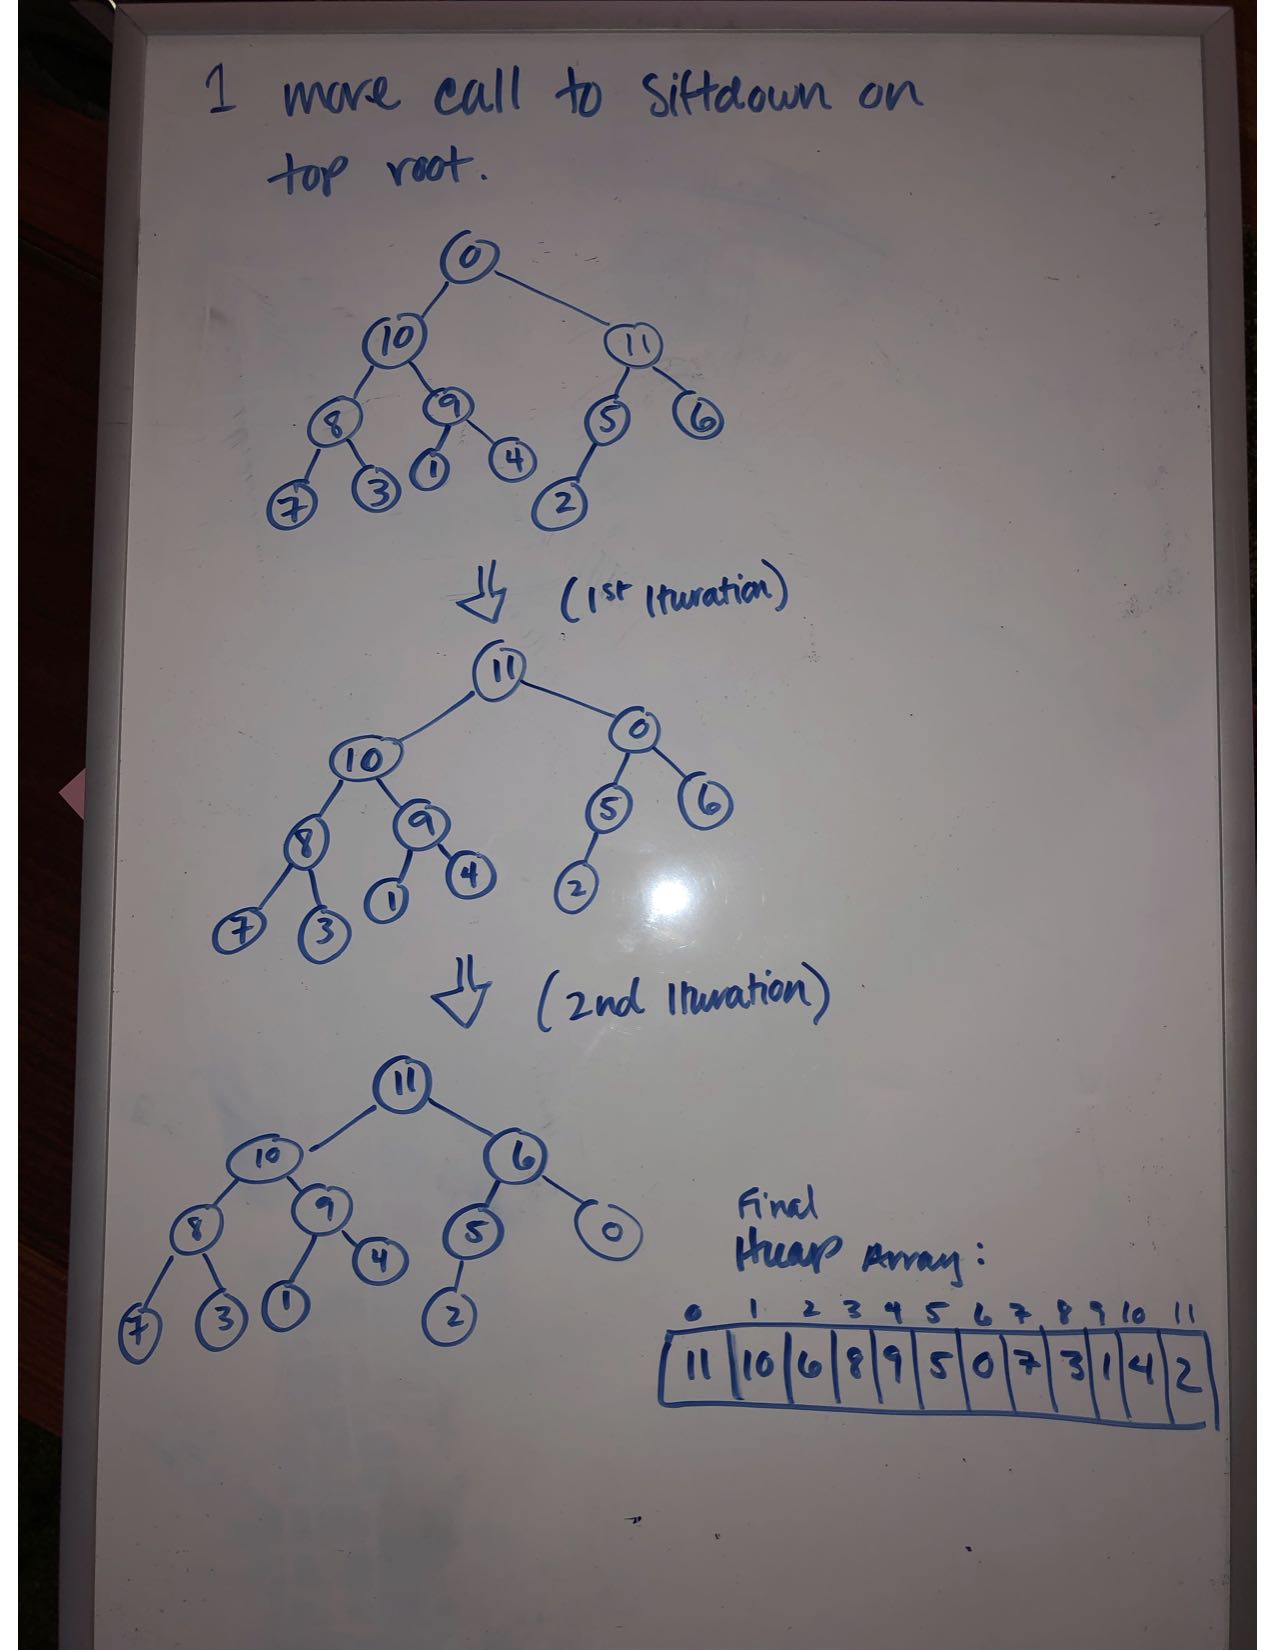 1 more call to siftdown on
top root.
0
10 11
8 9 5 6
7 3 1 4 2
(1st Ituration)
11
10 0
8 9 5 6
7 3 1 4 2
(2nd Ituration)
11
10 6
8 9 5 0
7 3 1 4 2
Final
Heap Array:
0 1 2 3 4 5 6 7 8 9 10 11
11 10 6 8 9 5 0 7 3 1 4 2